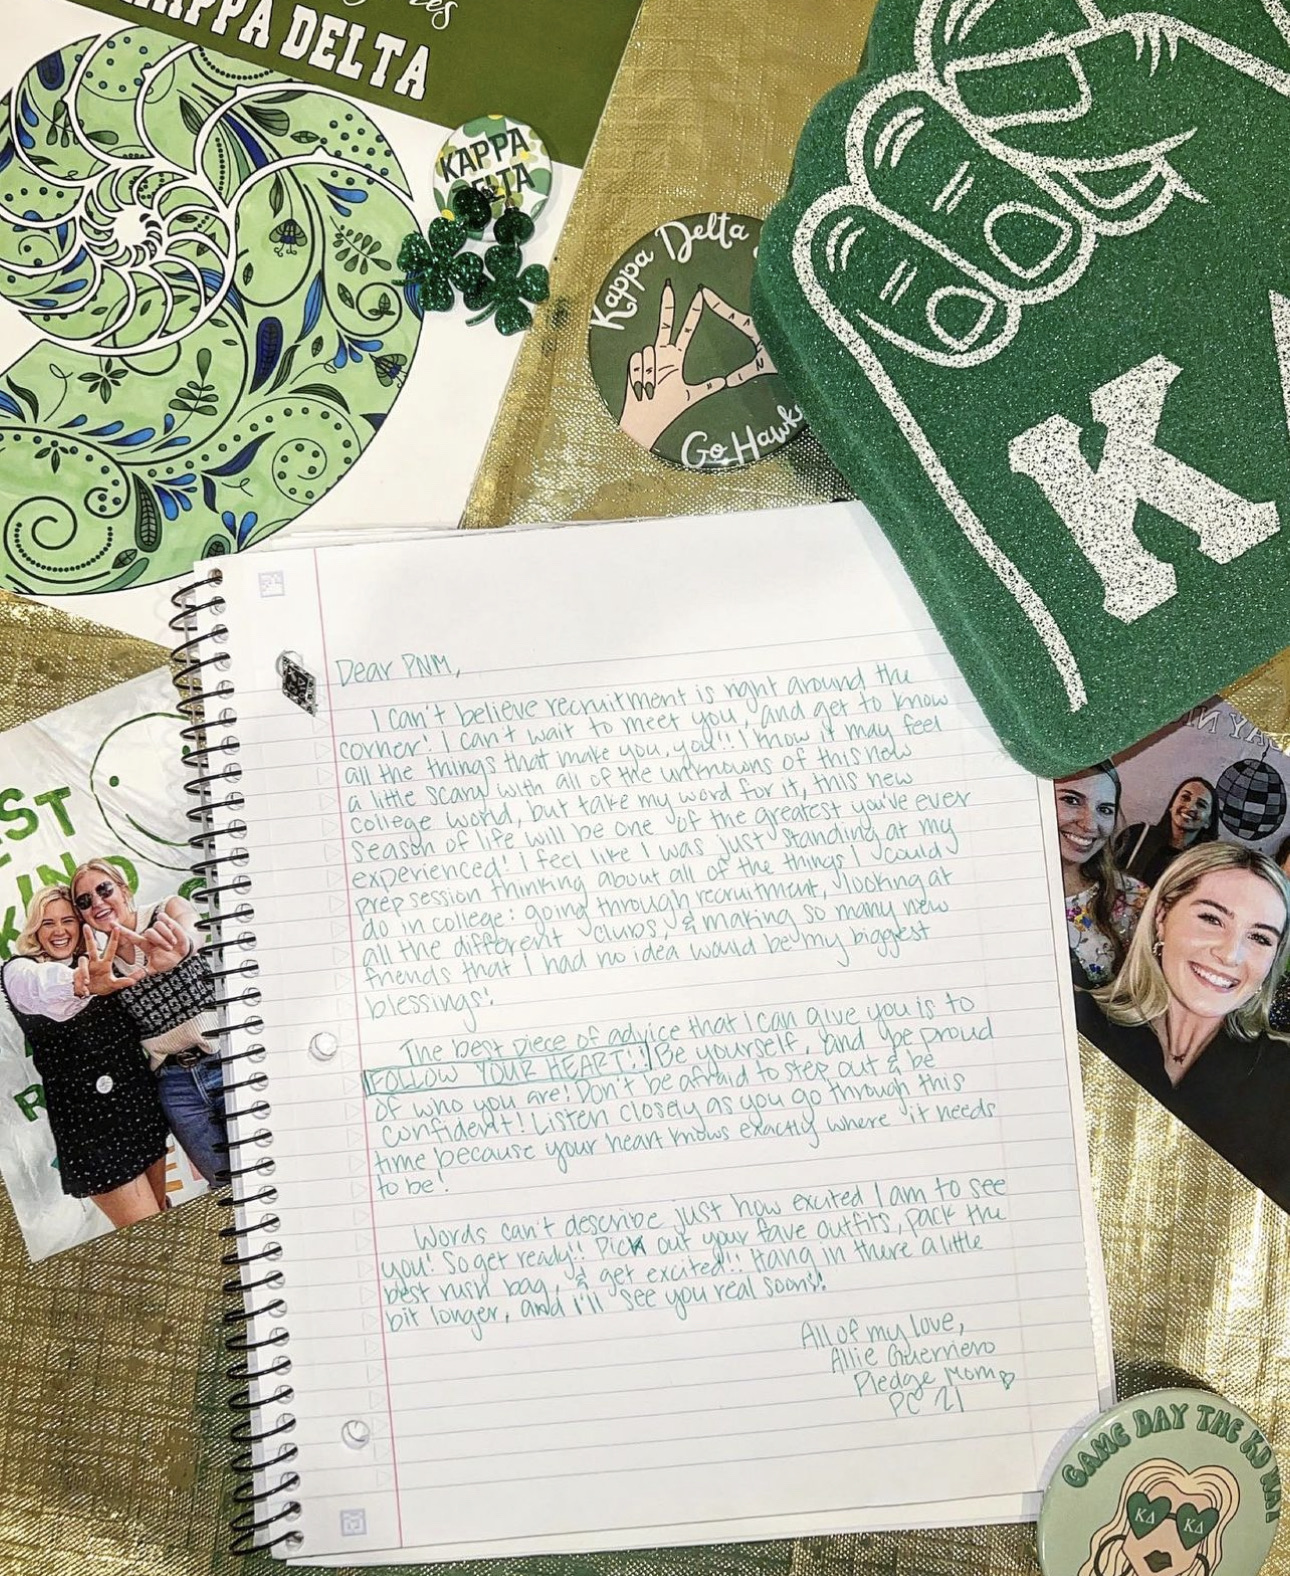 KAPPA DELTA
KAPPA
DELTA
Kappa Delta
Go Hawks
K
Dear PNM,
I can't believe recruitment is right around the
corner! I can't wait to meet you, and get to know
all the things that make you, you!! I know it may feel
a little scary with all of the unknowns of this new
college world, but take my word for it, this new
season of life will be one of the greatest you've ever
experienced! I feel like I was just standing at my
prep session thinking about all of the things I could
do in college: going through recruitment, looking at
all the different clubs, & making so many new
friends that I had no idea would be my biggest
blessings!
The best piece of advice that I can give you is to
FOLLOW YOUR HEART!! Be yourself, and be proud
of who you are! Don't be afraid to step out & be
confident! Listen closely as you go through this
time because your heart knows exactly where it needs
to be!
Words can't describe just how excited I am to see
you! So get ready!! Pick out your fave outfits, pack the
best rush bag, & get excited!! Hang in there a little
bit longer, and I'll see you real soon!!
All of my love,
Allie Guerriero
Pledge Mom
PC 21
GAME DAY THE KD WAY
KΔ KΔ